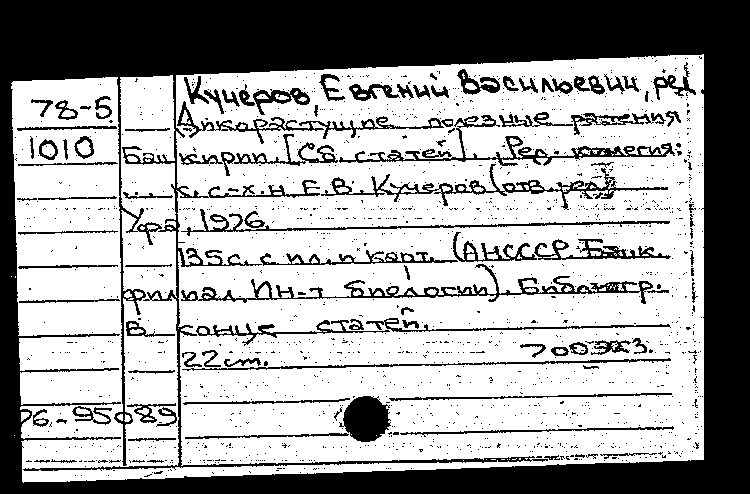 Кучеров, Евгений Васильевич, ред.
78-5 Дикорастущие полезные растения
1010 Башкирии. [Сб. статей]. Ред. коллегия:
... к. с-х. н. Е.В. Кучеров (отв. ред.)
Уфа, 1976.
135 с. с ил. и карт. (АНСССР. Башк.
филиал. Ин-т биологии). Библиогр.
в конце статей.
22 cm.
76-95089